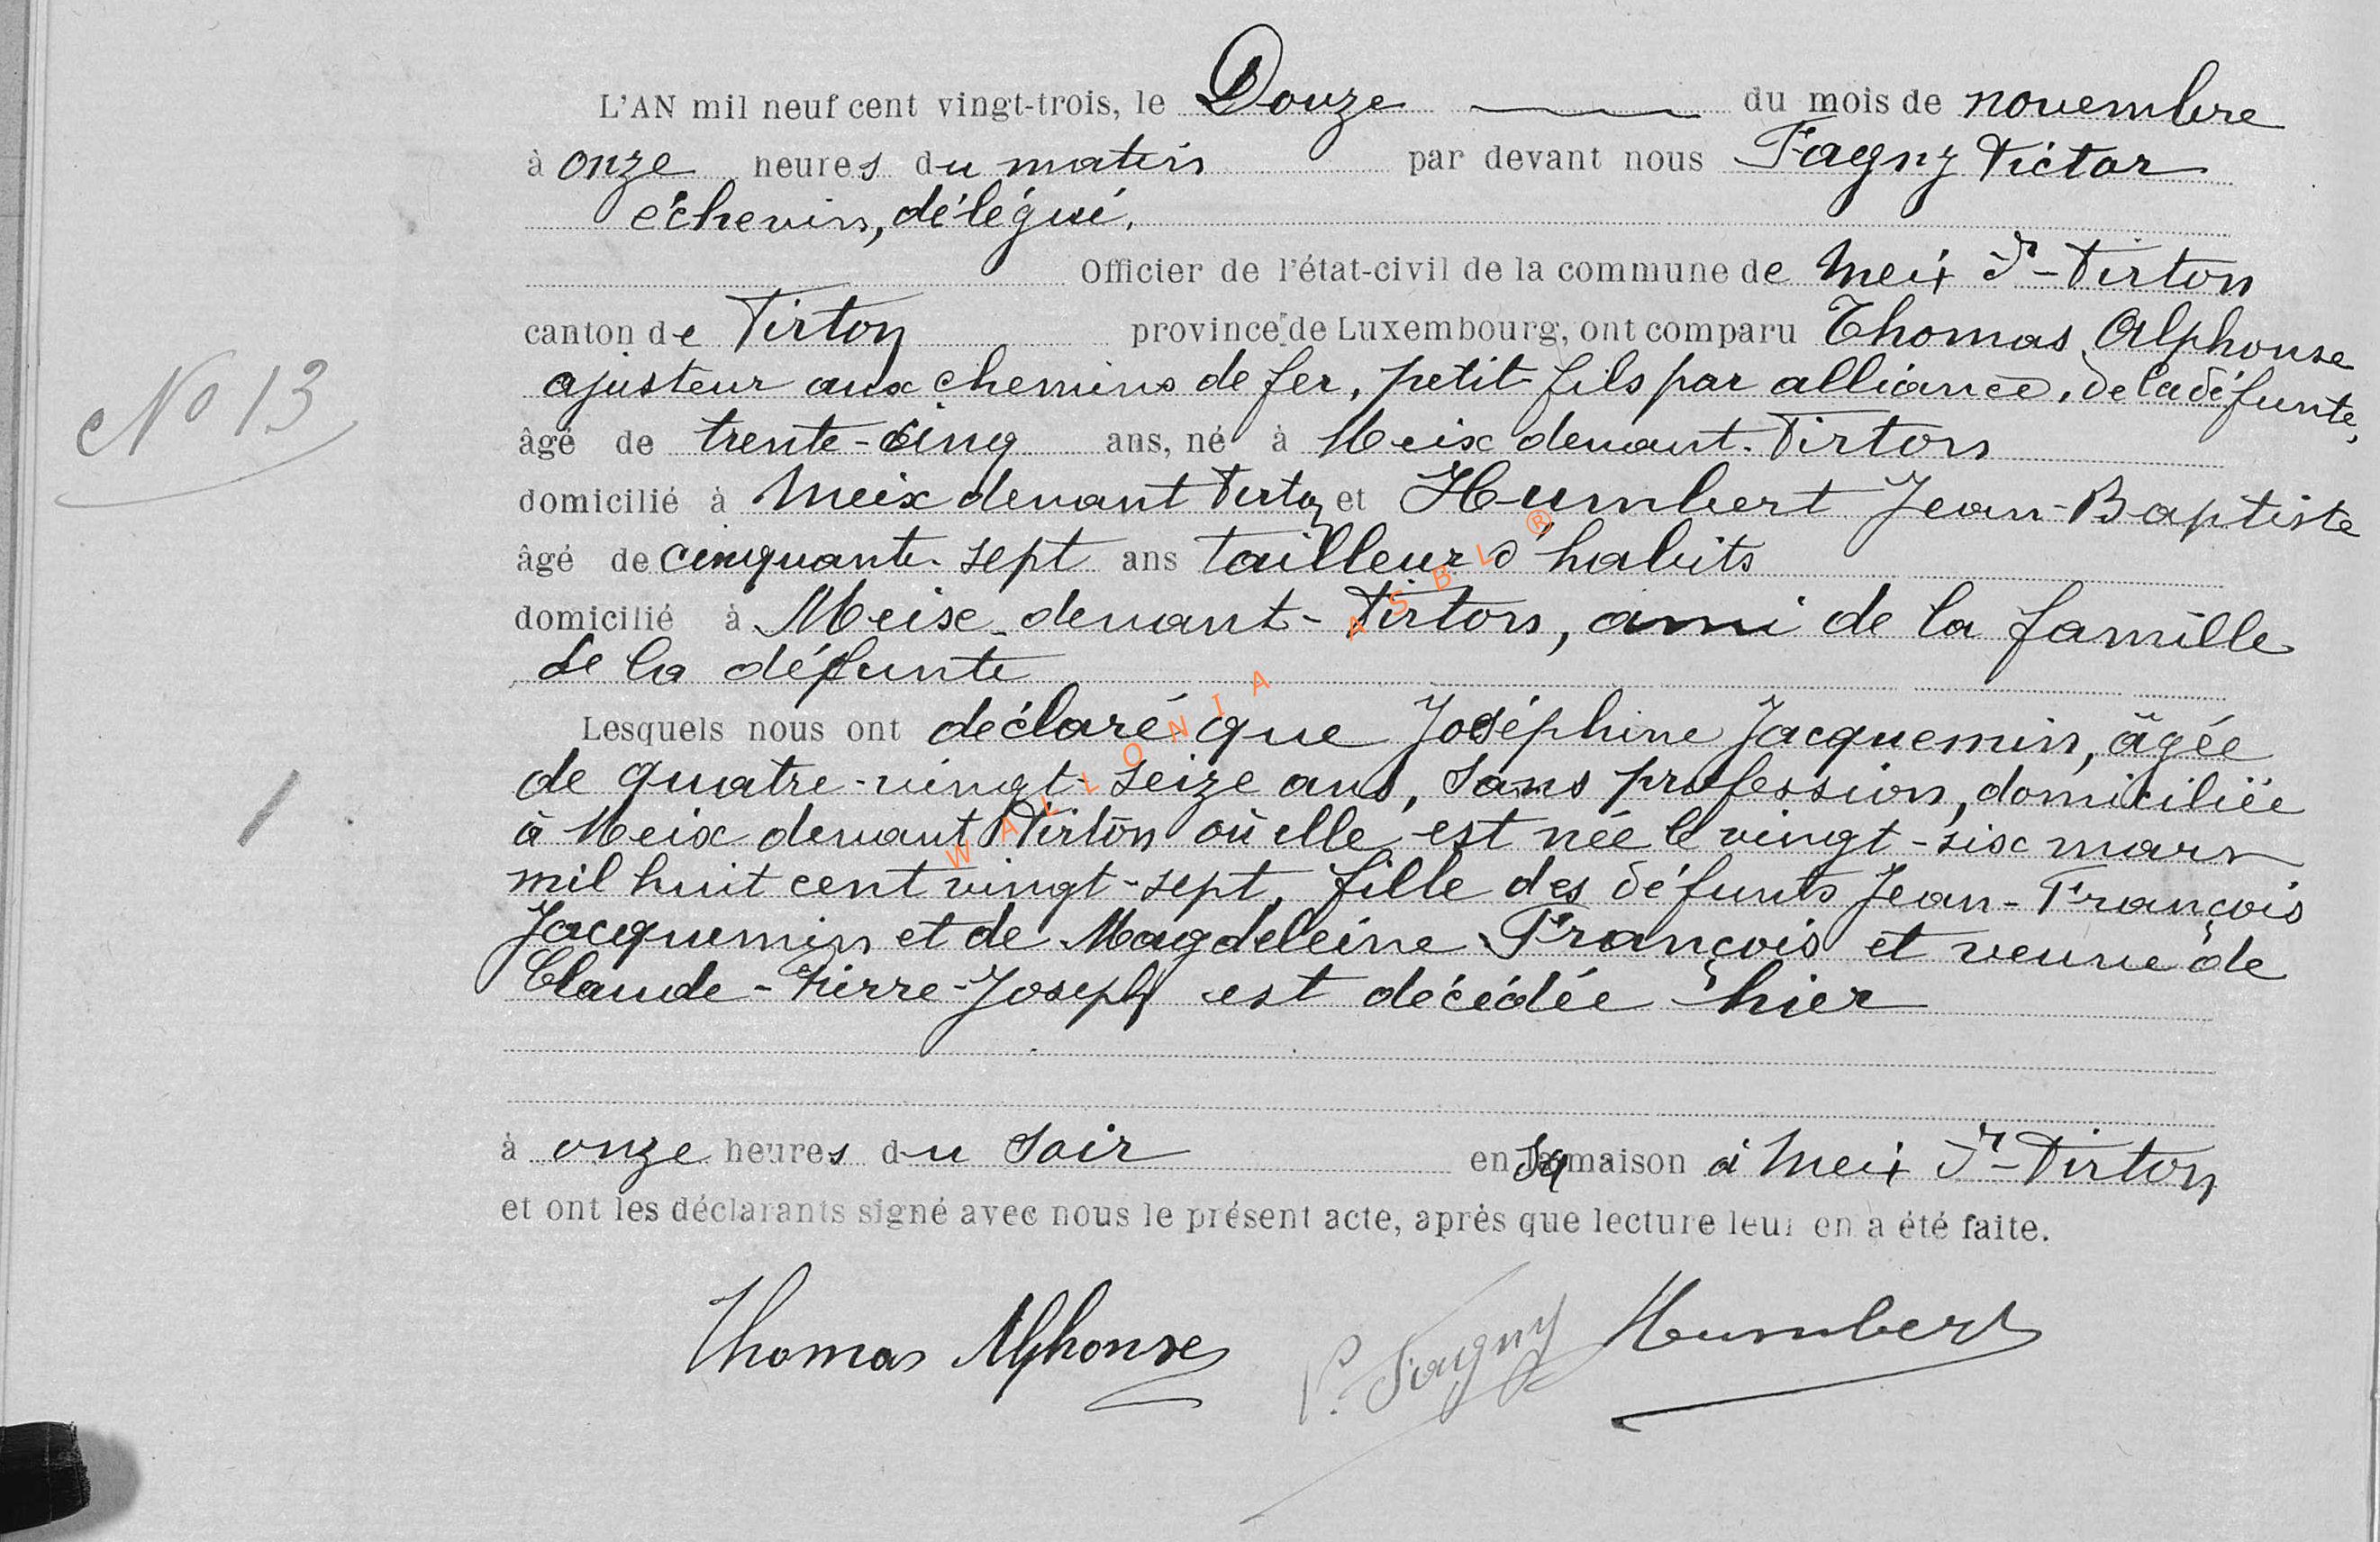 L'AN mil neuf cent vingt-trois, le Douze du mois de novembre
à onze heures du matin par devant nous Fagny Victor
échevin, délégué.
Officier de l'état-civil de la commune de Meix dt-Virton
canton de Virton province de Luxembourg, ont comparu Thomas Alphonse
ajusteur aux chemins de fer, petit-fils par alliance, de la défunte,
âgé de trente-cinq ans, né à Meix devant-Virton
domicilié à Meix devant Virton et Humbert Jean-Baptiste
âgé de cinquante-sept ans tailleur d'habits
domicilié à Meix-devant-Virton, ami de la famille
de la défunte
Lesquels nous ont déclaré que Joséphine Jacquemin, âgée
de quatre-vingt-seize ans, sans profession, domiciliée
à Meix devant Virton où elle est née le vingt-six mars
mil huit cent vingt-sept, fille des défunts Jean-François
Jacquemin et de Magdeleine François et veuve de
Claude-Pierre-Joseph est décédée hier
à onze heures du soir en sa maison à Meix dt-Virton
et ont les déclarants signé avec nous le présent acte, après que lecture leur en a été faite.
Thomas Alphonse V. Fagny Humbert
No 13
1
WALLONIA ASBL ®